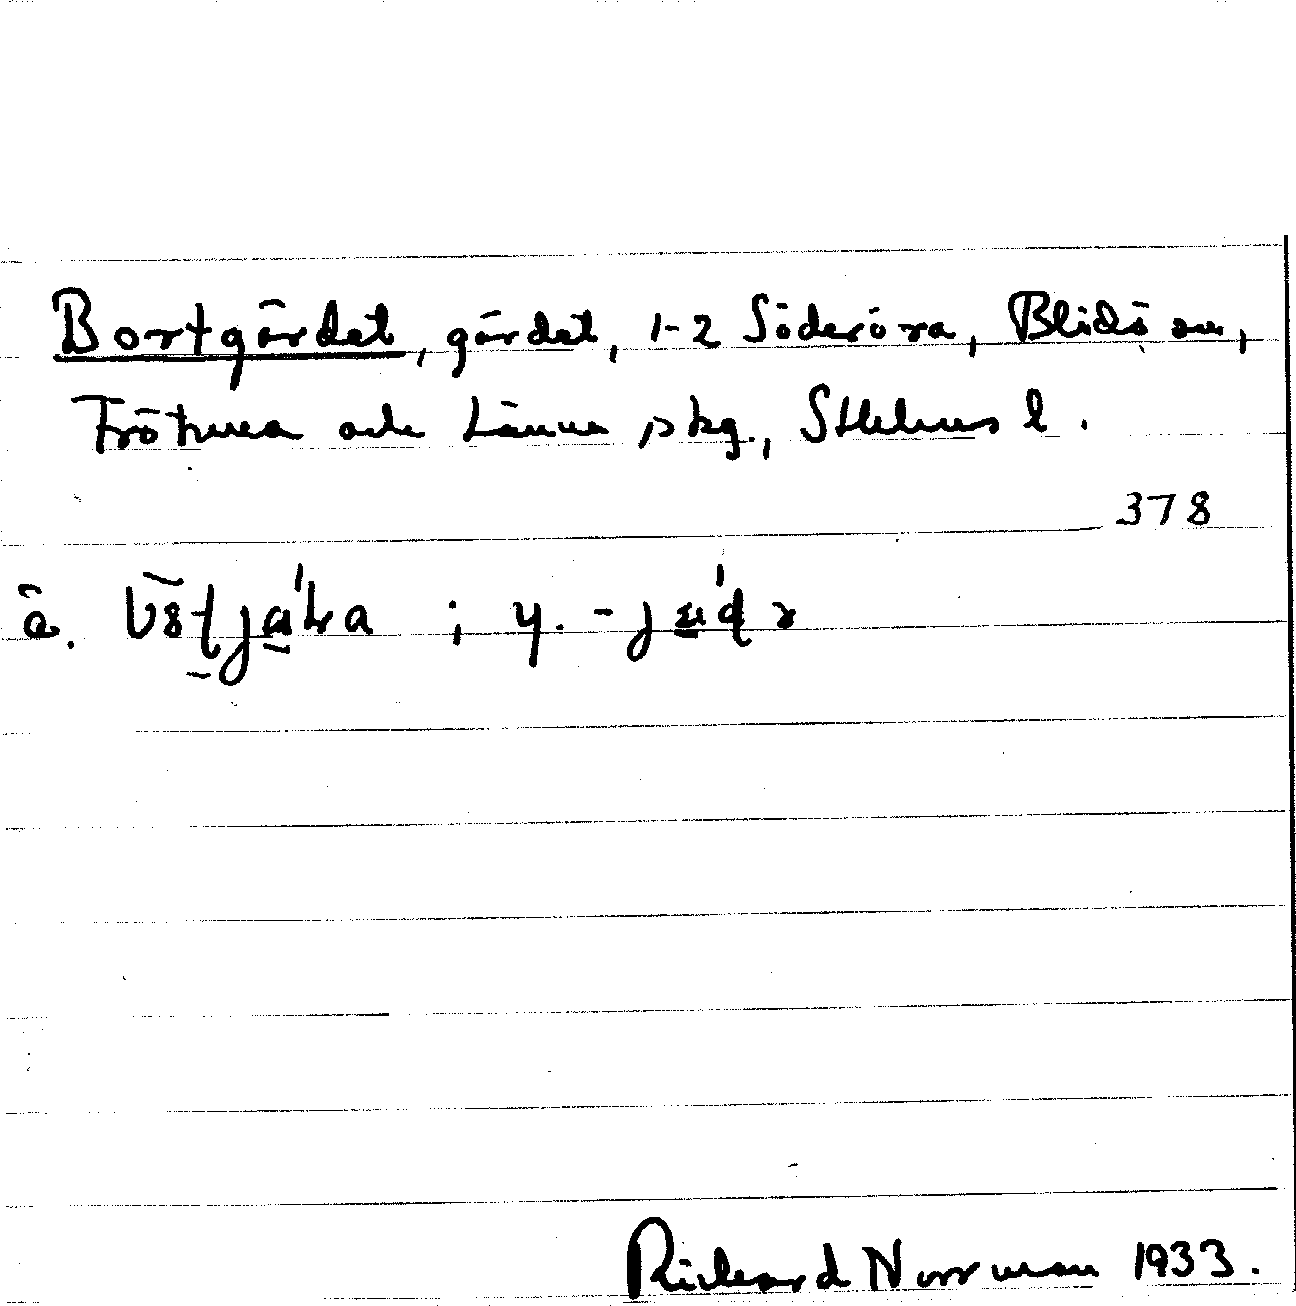 Bortgärdet, gärdet, 1-2 Söderöra, Blidö sn,
Frötuna och Länna skg., Sthlms l.
378
ä. ; y.
Rickard Norrman 1933.